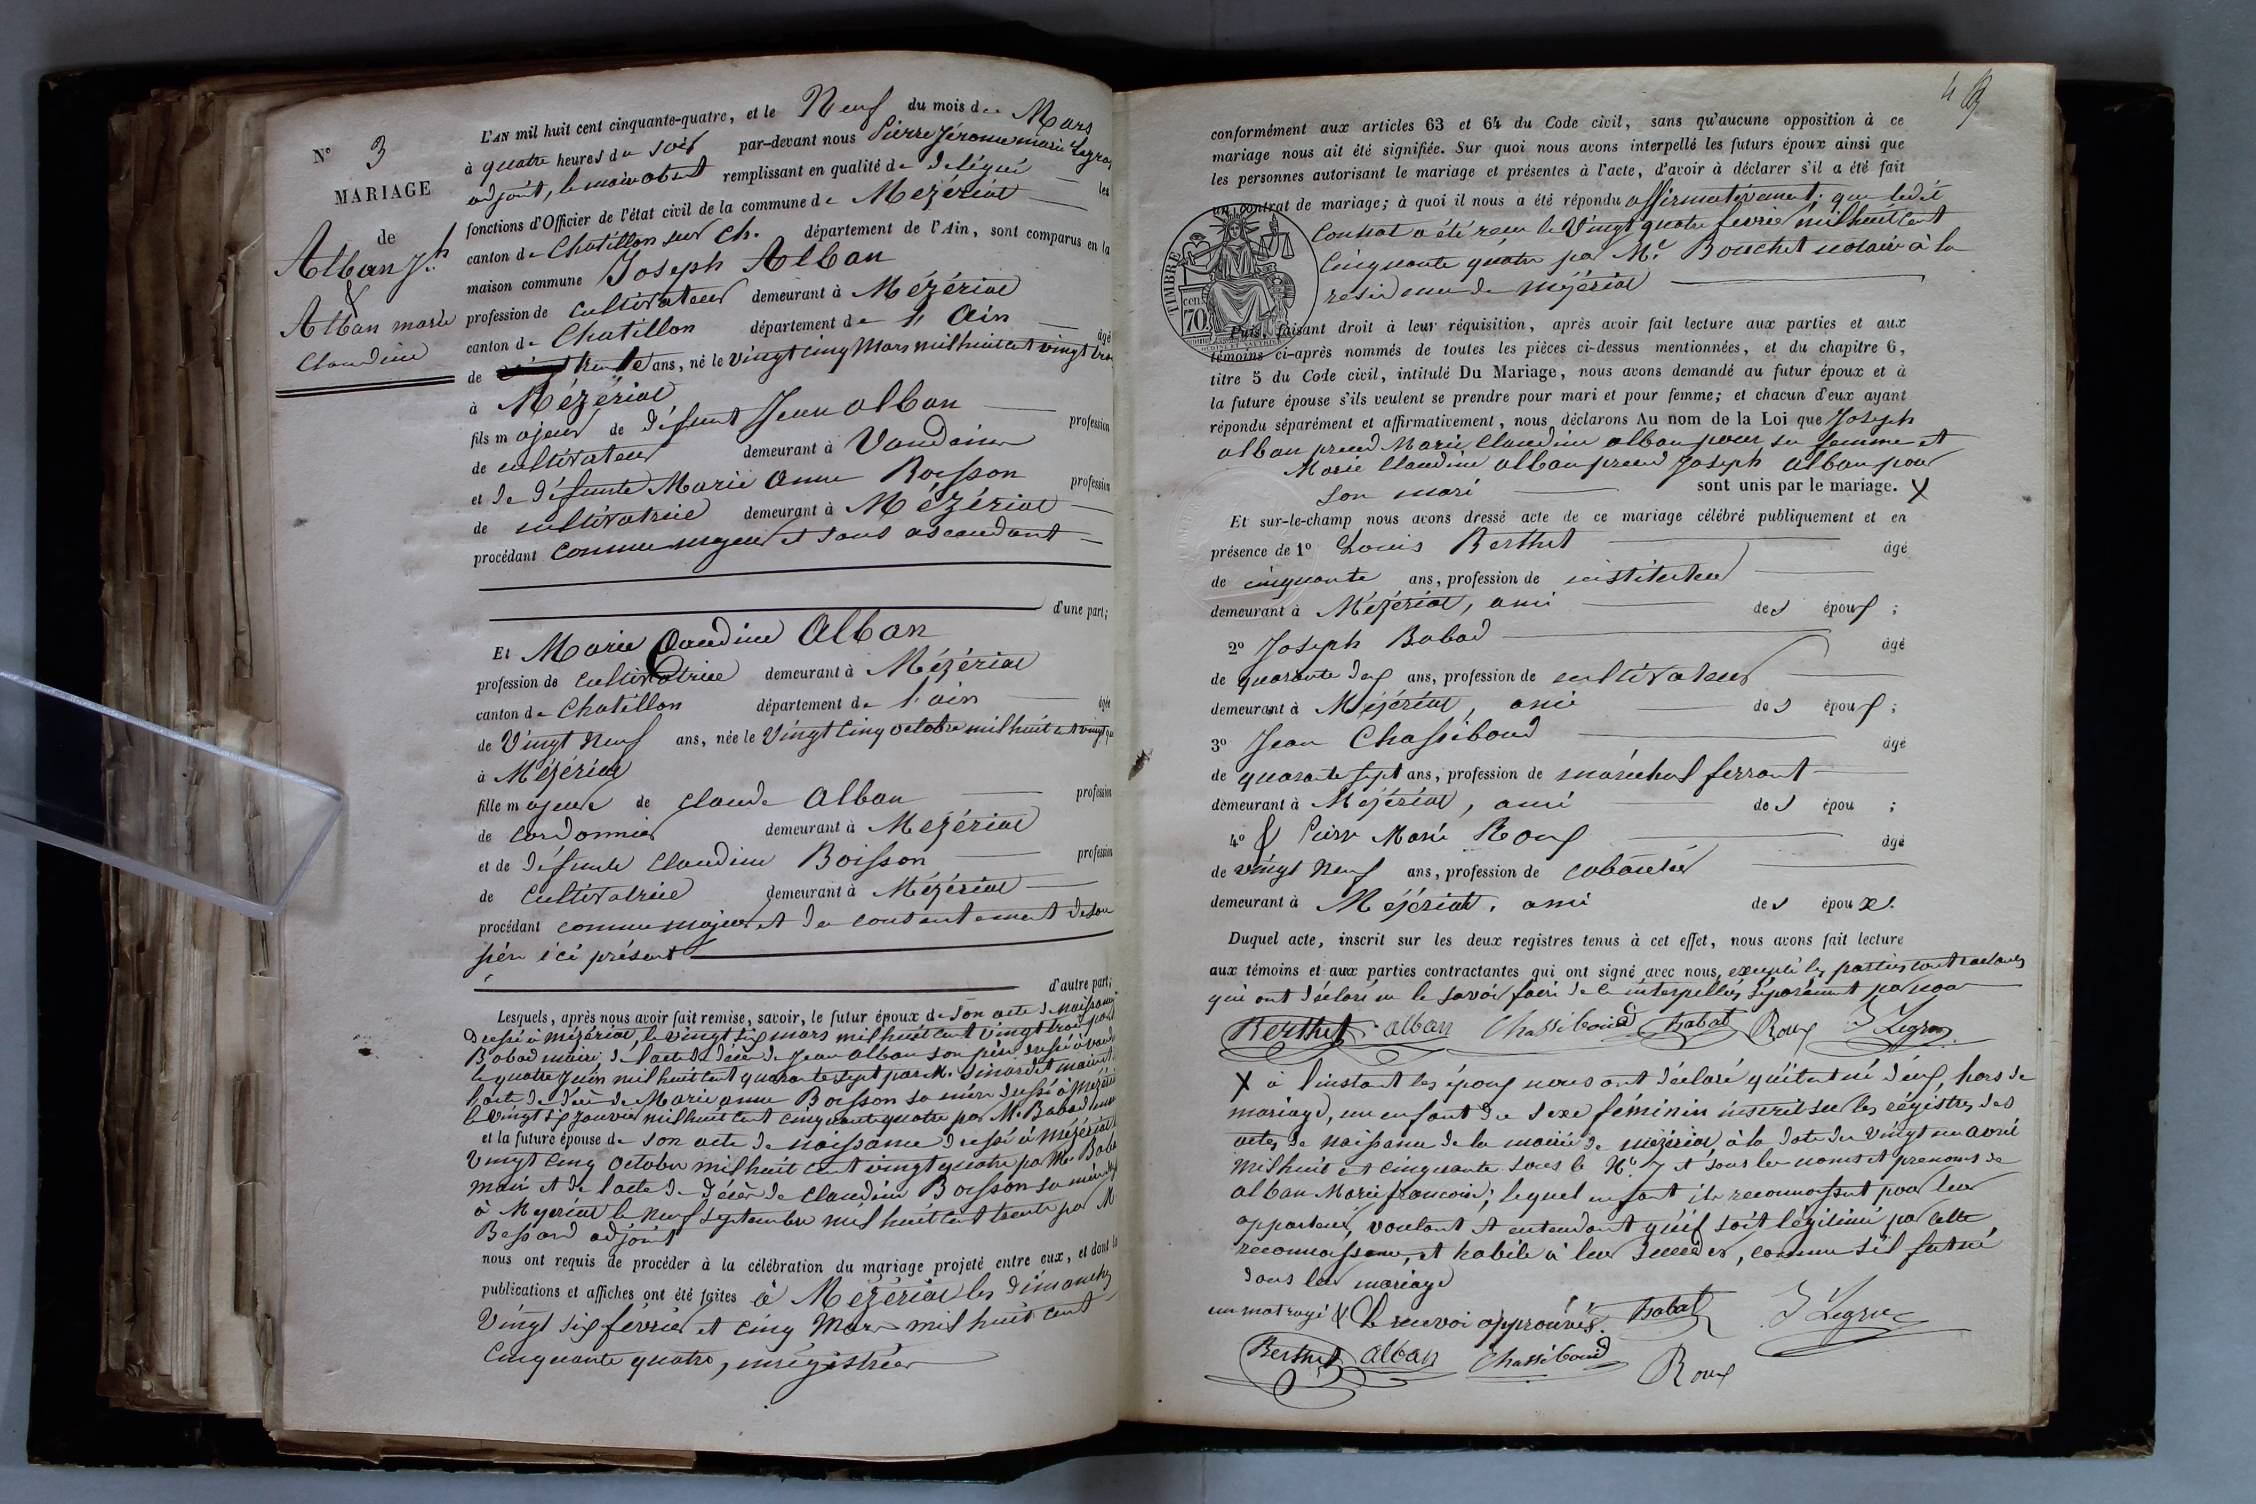 N° 3
MARIAGE
de
Alban Jh
&
Alban marie
Claudine
L'AN mil huit cent cinquante-quatre, et le Neuf du mois de Mars
à quatre heures du soir par-devant nous Pierre Jérome marie Legros
adjoint, le maire absent remplissant en qualité de délégué les
fonctions d'Officier de l'état civil de la commune de Mézériat
canton de Chatillon sur Ch. département de l'Ain, sont comparus en la
maison commune Joseph Alban
profession de cultivateur demeurant à Mézériat
canton de Chatillon département de l'Ain âgé
de trente ans, né le vingt cinq Mars mil huit cent vingt trois
à Mézériat
fils majeur de défunt Jean alban profession
de cultivateur demeurant à Vandeins
et de défunte Marie Anne Boisson profession
de cultivatrice demeurant à Mézériat
procédant comme majeur et sans ascendant
d'une part;
Et Marie Claudine Alban
profession de cultivatrice demeurant à Mézériat
canton de Chatillon département de l'ain âgée
de Vingt Neuf ans, née le Vingt Cinq octobre mil huit cent vingt qu
à Mézériat
fille majeure de Claude Alban profession
de cordonnier demeurant à Mézériat
et de défunte Claudine Boisson profession
de Cultivatrice demeurant à Mézériat
procédant comme majeur et du consentement de son
père ici présent
d'autre part;
Lesquels, après nous avoir fait remise, savoir, le futur époux de son acte de naissance
dressé à Mézériat, le vingt six mars mil huit cent vingt trois par
Babad maire; de l'acte de décès de Jean alban son père dressé à Vand
le quatre Juin mil huit cent quarante sept par M. maire;
l'acte de décès de Marie anne Boisson sa mère dressé à Mézériat
le vingt six Janvier mil huit cent cinquante quatre par M. Babad
et la future épouse de son acte de naissance dressé à Mézériat
Vingt Cinq Octobre mil huit cent vingt quatre par Mr Baba
maire et de l'acte de décès de Claudine Boisson sa mère
à Mézériat le neuf septembre mil huit cent trente par M
Bessard adjoint
nous ont requis de procéder à la célébration du mariage projeté entre eux, et dont les
publications et affiches ont été faites à Mézériat les dimanches
Vingt six février et cinq Mars mil huit cent
Cinquante quatre, enrégistrées
4
conformément aux articles 63 et 64 du Code civil, sans qu'aucune opposition à ce
mariage nous ait été signifiée. Sur quoi nous avons interpellé les futurs époux ainsi que
les personnes autorisant le mariage et présentes à l'acte, d'avoir à déclarer s'il a été fait
un contrat de mariage; à quoi il nous a été répondu affirmativement; que ledit
Contrat a été reçu le Vingt quatre février mil huit cent
Cinquante quatre par Me Bouchet notaire à la
residence de Mézériat
TIMBRE
cent. 70.
Puis, faisant droit à leur réquisition, après avoir fait lecture aux parties et aux
témoins ci-après nommés de toutes les pièces ci-dessus mentionnées, et du chapitre 6,
titre 5 du Code civil, intitulé Du Mariage, nous avons demandé au futur époux et à
la future épouse s'ils veulent se prendre pour mari et pour femme; et chacun d'eux ayant
répondu séparément et affirmativement, nous déclarons Au nom de la Loi que Joseph
alban prend Marie Claudine alban pour sa femme et
Marie Claudine alban prend Joseph alban pour
son mari sont unis par le mariage. X
Et sur-le-champ nous avons dressé acte de ce mariage célébré publiquement et en
présence de 1° Louis Berthet âgé
de cinquante ans, profession de instituteur
demeurant à Mézériat, ami des époux;
2° Joseph Babad âgé
de quarante deux ans, profession de cultivateur
demeurant à Mézériat, ami des époux;
3° Jean Chassiboud âgé
de quarante sept ans, profession de maréchal ferrant
demeurant à Mézériat, ami des épou ;
4° Pierre Marie Roux âgé
de vingt Neuf ans, profession de cabaretier
demeurant à Mézériat, ami des époux.
Duquel acte, inscrit sur les deux registres tenus à cet effet, nous avons fait lecture
aux témoins et aux parties contractantes qui ont signé avec nous, excepté les parties contractantes
qui ont déclaré ne le savoir faire de ce interpellés séparément par nous
Berthet alban Chassiboud Babat Roux J Legros
X à l'instant les époux nous ont déclaré qu'il est né d'eux, hors de
mariage, un enfant du sexe féminin inscrit sur les régistres des
actes de naissance de la mairie de Mézériat, à la date du Vingt un avril
mil huit cent cinquante sous le N° 7 et sous les noms et prenoms de
alban Marie francoise; lequel enfant ils reconnaissent pour leur
appartenir, voulant et entendant qu'il soit légitimé par cette
reconnaissance, et habile à leur succéder, comme s'il fut né
dans leur mariage
un mot rayé & le renvoi approuvés. Babat J Legros
Berthet alban Chassiboud Roux